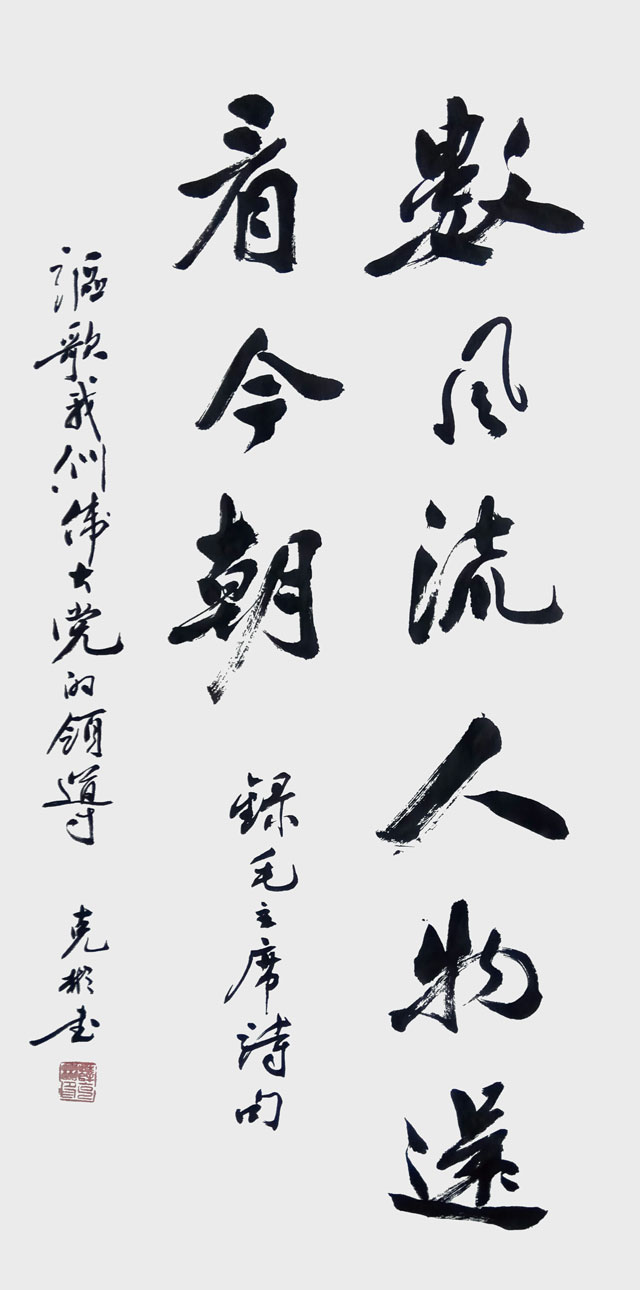 數风流人物還
看今朝
録毛主席詩句
謳歌我们偉大党的領導
克彬書